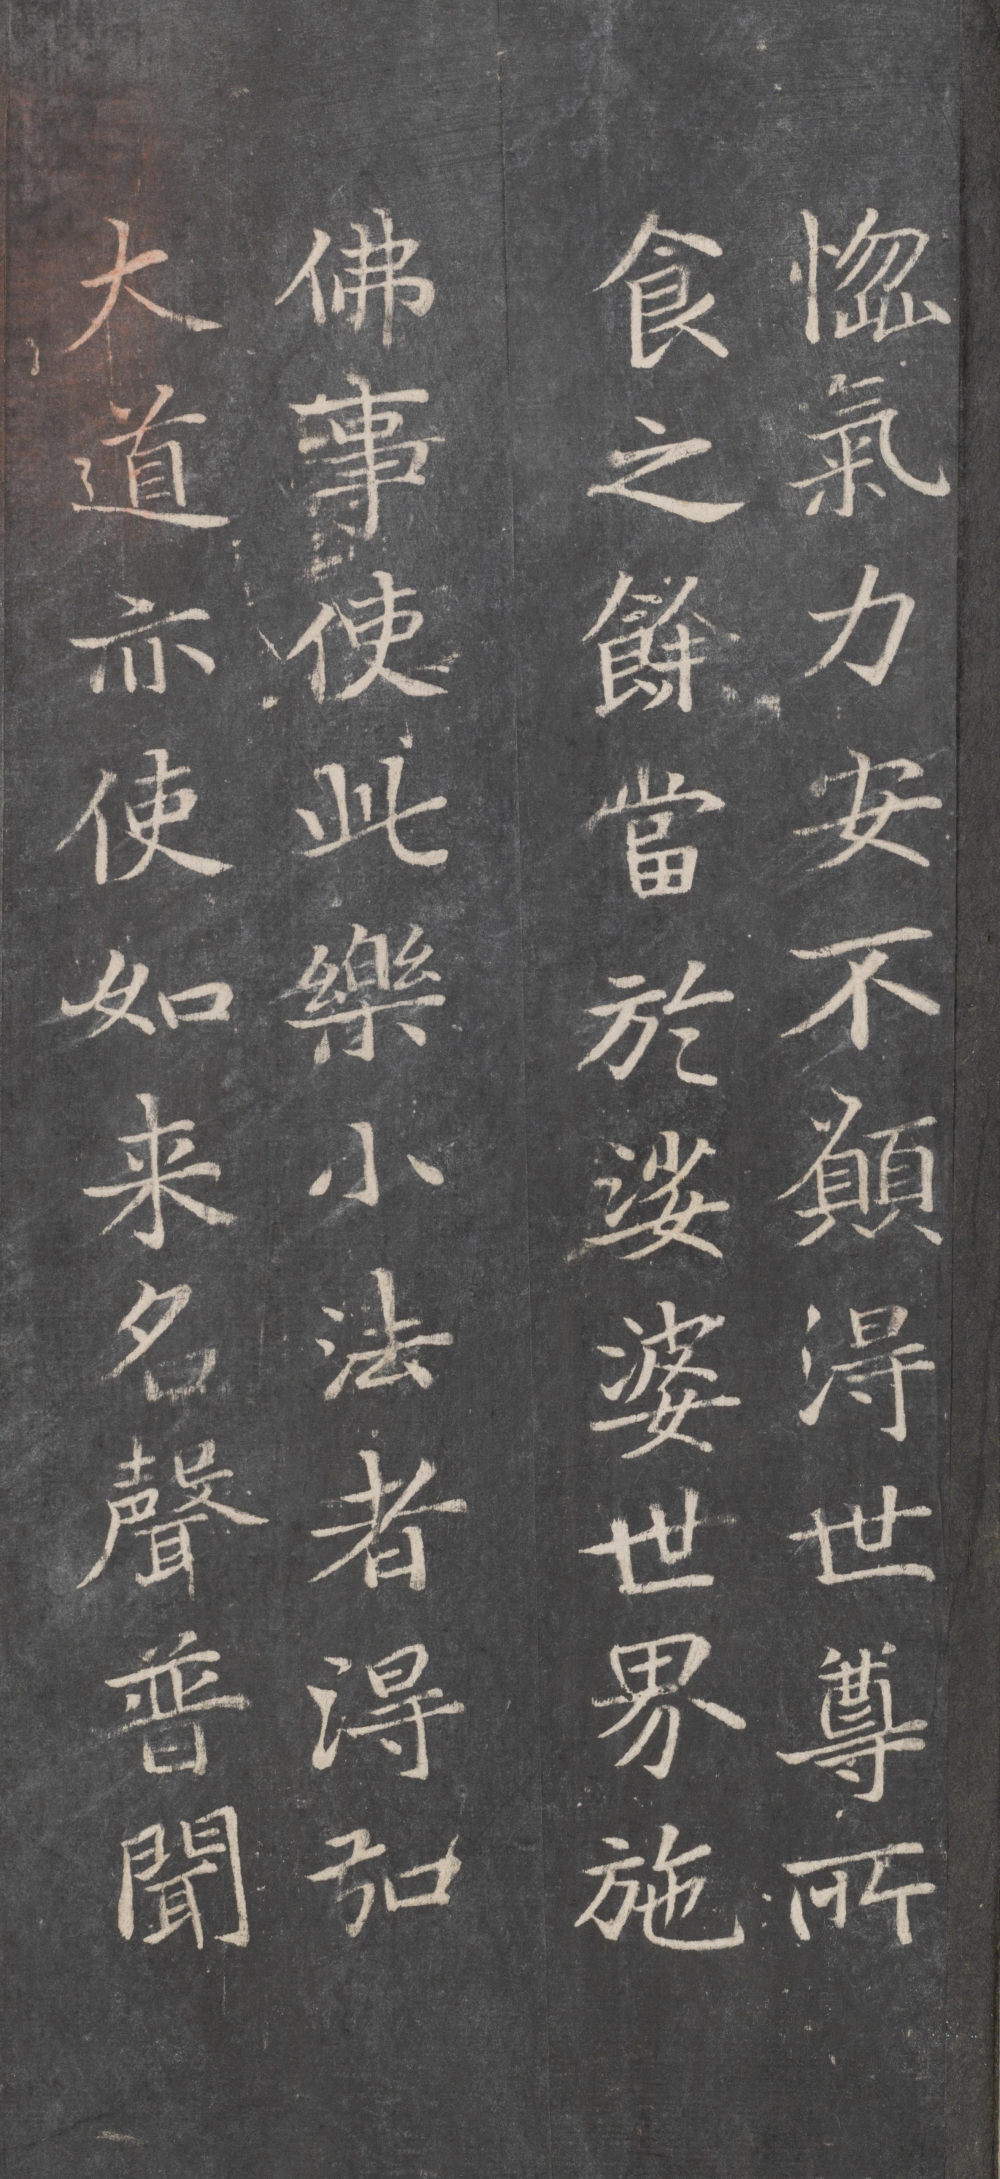 惱氣力安不願得世尊所
食之餘當於娑婆世界施
佛事使此樂小法者得弘
大道亦使如来名聲普聞